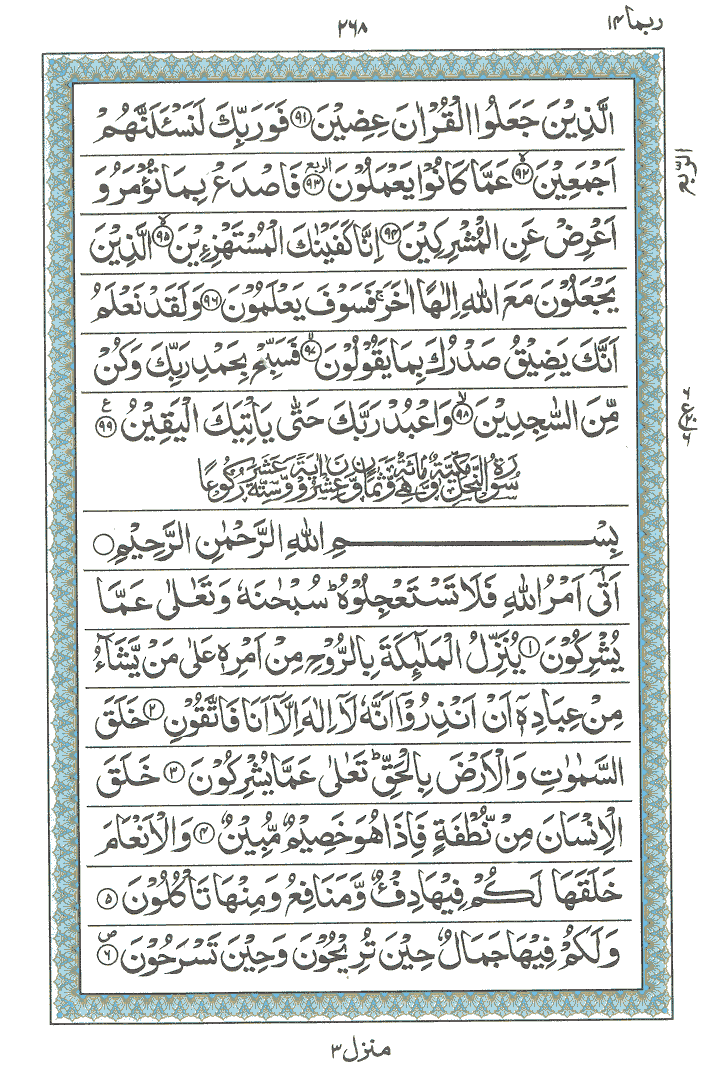 ربما ۱۴
۲۶۸
الَّذِيْنَ جَعَلُوا الْقُرْاٰنَ عِضِيْنَ ۹۱ فَوَرَبِّكَ لَنَسْـَٔلَنَّهُمْ
اَجْمَعِيْنَ ۙ۹۲ عَمَّا كَانُوْا يَعْمَلُوْنَ الربع ۹۳ فَاصْدَعْ بِمَا تُؤْمَرُ وَ
اَعْرِضْ عَنِ الْمُشْرِكِيْنَ ۹۴ اِنَّا كَفَيْنٰكَ الْمُسْتَهْزِءِيْنَ ۙ۹۵ الَّذِيْنَ
يَجْعَلُوْنَ مَعَ اللّٰهِ اِلٰهًا اٰخَرَ ۚ فَسَوْفَ يَعْلَمُوْنَ ۹۶ وَلَقَدْ نَعْلَمُ
اَنَّكَ يَضِيْقُ صَدْرُكَ بِمَا يَقُوْلُوْنَ ۙ۹۷ فَسَبِّحْ بِحَمْدِ رَبِّكَ وَكُنْ
مِّنَ السّٰجِدِيْنَ ۙ۹۸ وَاعْبُدْ رَبَّكَ حَتّٰى يَاْتِيَكَ الْيَقِيْنُ ع ۹۹
سُوْرَةُ النَّحْلِ مَكِّيَّةٌ وَّهِىَ مِائَةٌ وَّثَمَانٍ وَّعِشْرُوْنَ اٰيَةً وَّسِتَّةَ عَشَرَ رُكُوْعًا
بِسْمِ اللّٰهِ الرَّحْمٰنِ الرَّحِيْمِ
اَتٰٓى اَمْرُ اللّٰهِ فَلَا تَسْتَعْجِلُوْهُ ؕ سُبْحٰنَهٗ وَتَعٰلٰى عَمَّا
يُشْرِكُوْنَ ۱ يُنَزِّلُ الْمَلٰٓئِكَةَ بِالرُّوْحِ مِنْ اَمْرِهٖ عَلٰى مَنْ يَّشَآءُ
مِنْ عِبَادِهٖٓ اَنْ اَنْذِرُوْٓا اَنَّهٗ لَاۤ اِلٰهَ اِلَّاۤ اَنَا فَاتَّقُوْنِ ۲ خَلَقَ
السَّمٰوٰتِ وَالْاَرْضَ بِالْحَقِّ ؕ تَعٰلٰى عَمَّا يُشْرِكُوْنَ ۳ خَلَقَ
الْاِنْسَانَ مِنْ نُّطْفَةٍ فَاِذَا هُوَ خَصِيْمٌ مُّبِيْنٌ ۴ وَالْاَنْعَامَ
خَلَقَهَا لَكُمْ فِيْهَا دِفْءٌ وَّمَنَافِعُ وَمِنْهَا تَاْكُلُوْنَ ۵
وَلَكُمْ فِيْهَا جَمَالٌ حِيْنَ تُرِيْحُوْنَ وَحِيْنَ تَسْرَحُوْنَ ص ۶
الربع
۶ ع ۲۰ ۶
منزل ۳